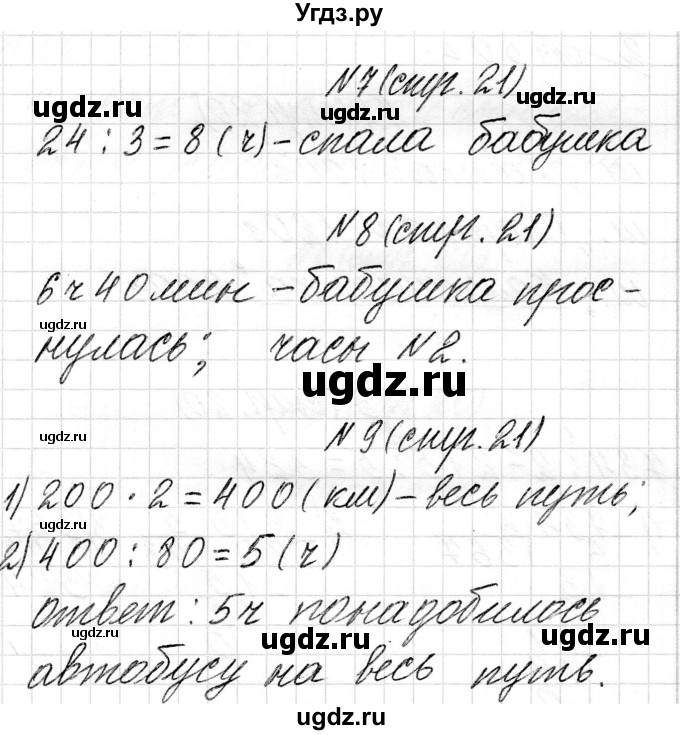 Угдз.ру
N7(стр. 21)
ugdz.ru ugdz.ru
24 : 3 = 8 (ч) - спала бабушка
N8(стр. 21)
6 ч 40 мин - бабушка прос -
ugdz.ru
нулась; часы N2.
ugdz.ru
ugdz.ru N9(стр. 21)
1) 200 · 2 = 400 (км) - весь путь;
2) 400 : 80 = 5 (ч)
ответ : 5ч понадобилось
ugdz.ru ugdz.ru
автобусу на весь путь.
ugdz.ru